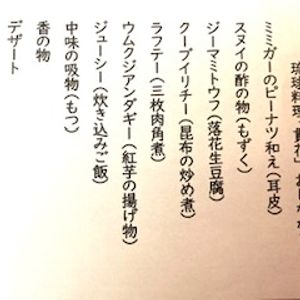 琉球料理
ミミガーのピーナツ和え(耳皮)
スヌイの酢の物(もずく)
ジーマミトウフ(落花生豆腐)
クーブイリチー(昆布の炒め煮)
ラフテー(三枚肉角煮)
ウムクジアンダギー(紅芋の揚げ物)
ジューシー(炊き込みご飯)
中味の吸物(もつ)
香の物
デザート